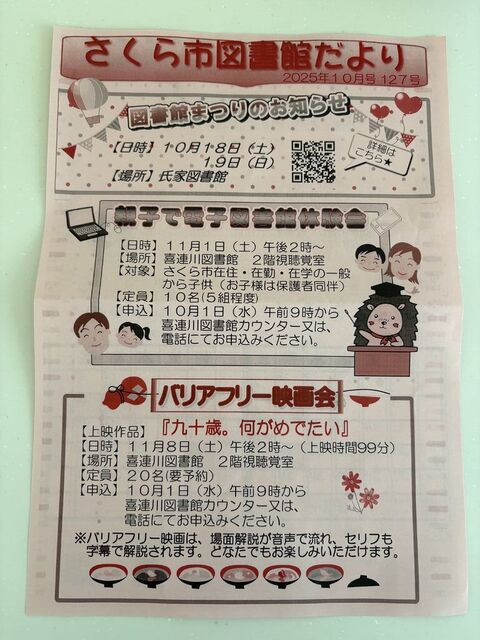 さくら市図書館だより
2025年10月号 127号
図書館まつりのお知らせ
【日時】 10月18日(土)
19日(日)
【場所】 氏家図書館
詳細は
こちら★
親子で電子図書館体験会
【日時】11月1日(土)午後2時～
【場所】喜連川図書館 2階視聴覚室
【対象】さくら市在住・在勤・在学の一般
から子供(お子様は保護者同伴)
【定員】10名(5組程度)
【申込】10月1日(水)午前9時から
喜連川図書館カウンター又は、
電話にてお申込みください。
バリアフリー映画会
【上映作品】『九十歳。何がめでたい』
【日時】11月8日(土)午後2時～(上映時間99分)
【場所】喜連川図書館 2階視聴覚室
【定員】20名(要予約)
【申込】10月1日(水)午前9時から
喜連川図書館カウンター又は、
電話にてお申込みください。
※バリアフリー映画は、場面解説が音声で流れ、セリフも
字幕で解説されます。どなたでもお楽しみいただけます。